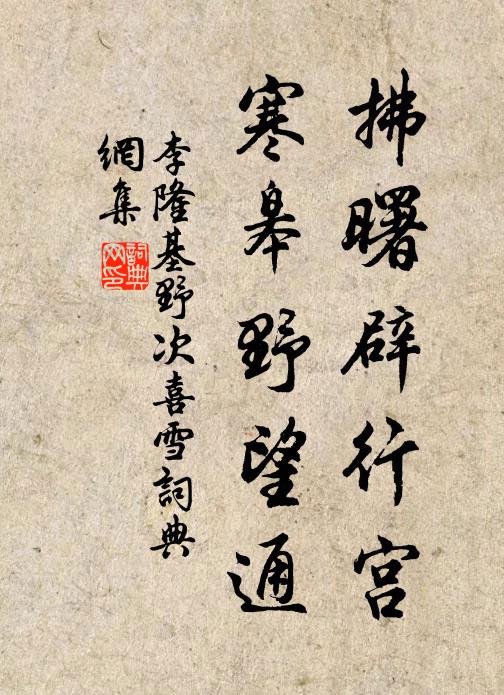 拂曙辟行宫
寒皋野望通
李隆基野次喜雪詞典
網集
詞典
网印